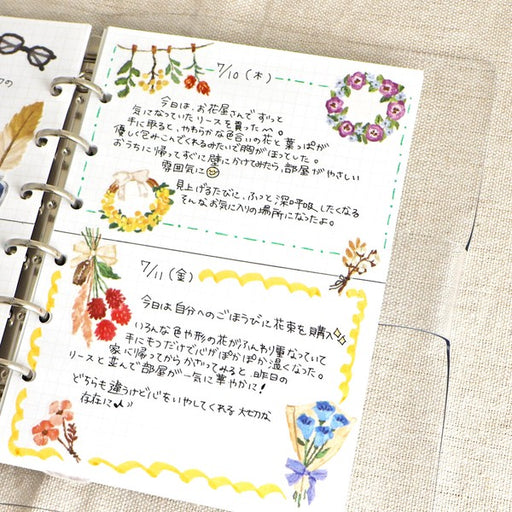 の
7/10(木)
今日は、お花屋さんでずっと
気になっていたリースを買った〜。
手に取ると、やわらかな色合いの花と葉っぱが
優しく包みこんでくれるみたいで胸がほっとした。
おうちに帰ってすぐに壁にかけてみたら、部屋がやさしい
雰囲気に
見上げるたびに、ふっと深呼吸したくなる
そんなお気に入りの場所になったよ。
7/11(金)
今日は自分へのごほうびに花束を購入
いろんな色や形の花がふんわり重なっていて
手にもつだけで心がぽかぽか温くなった。
家に帰ってからかざってみると、昨日の
リースと並んで部屋が一気に華やかに!
どちらも違うけど心をいやしてくれる大切な
存在に♪